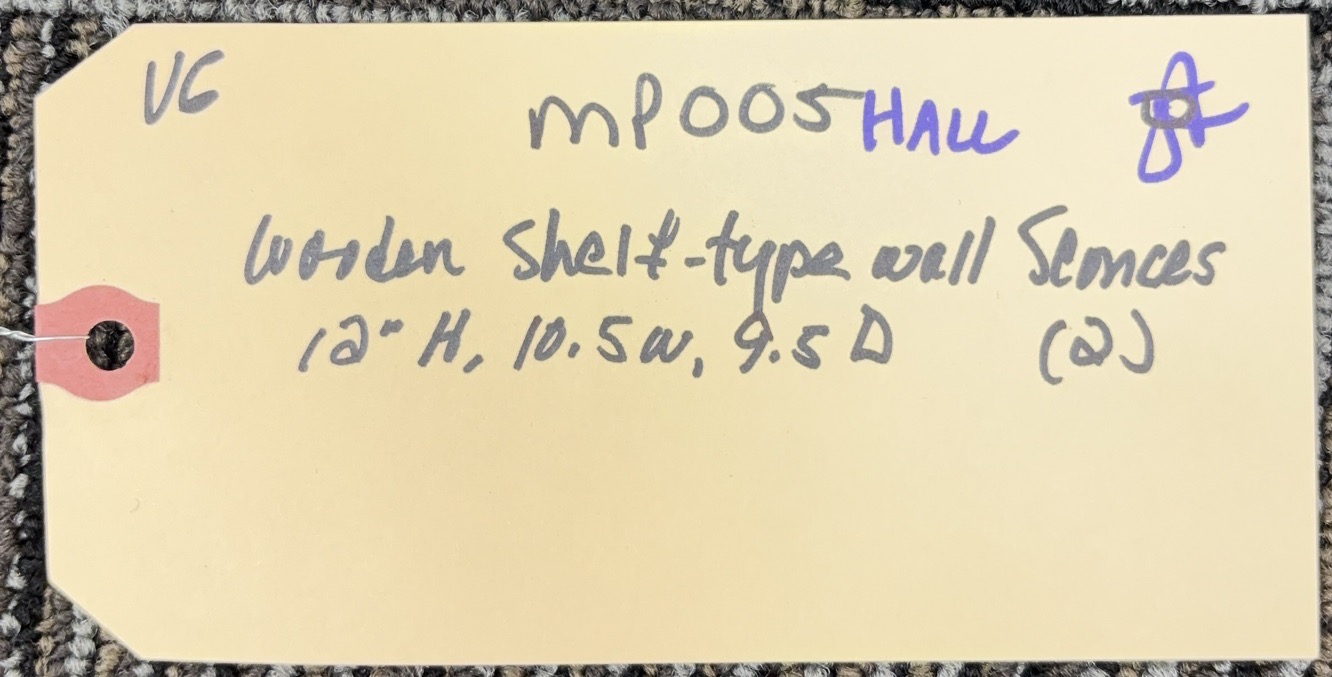 VG
MP005 HALL
Wooden Shelf-type wall Sconces
12" H, 10.5 W, 9.5 D (2)